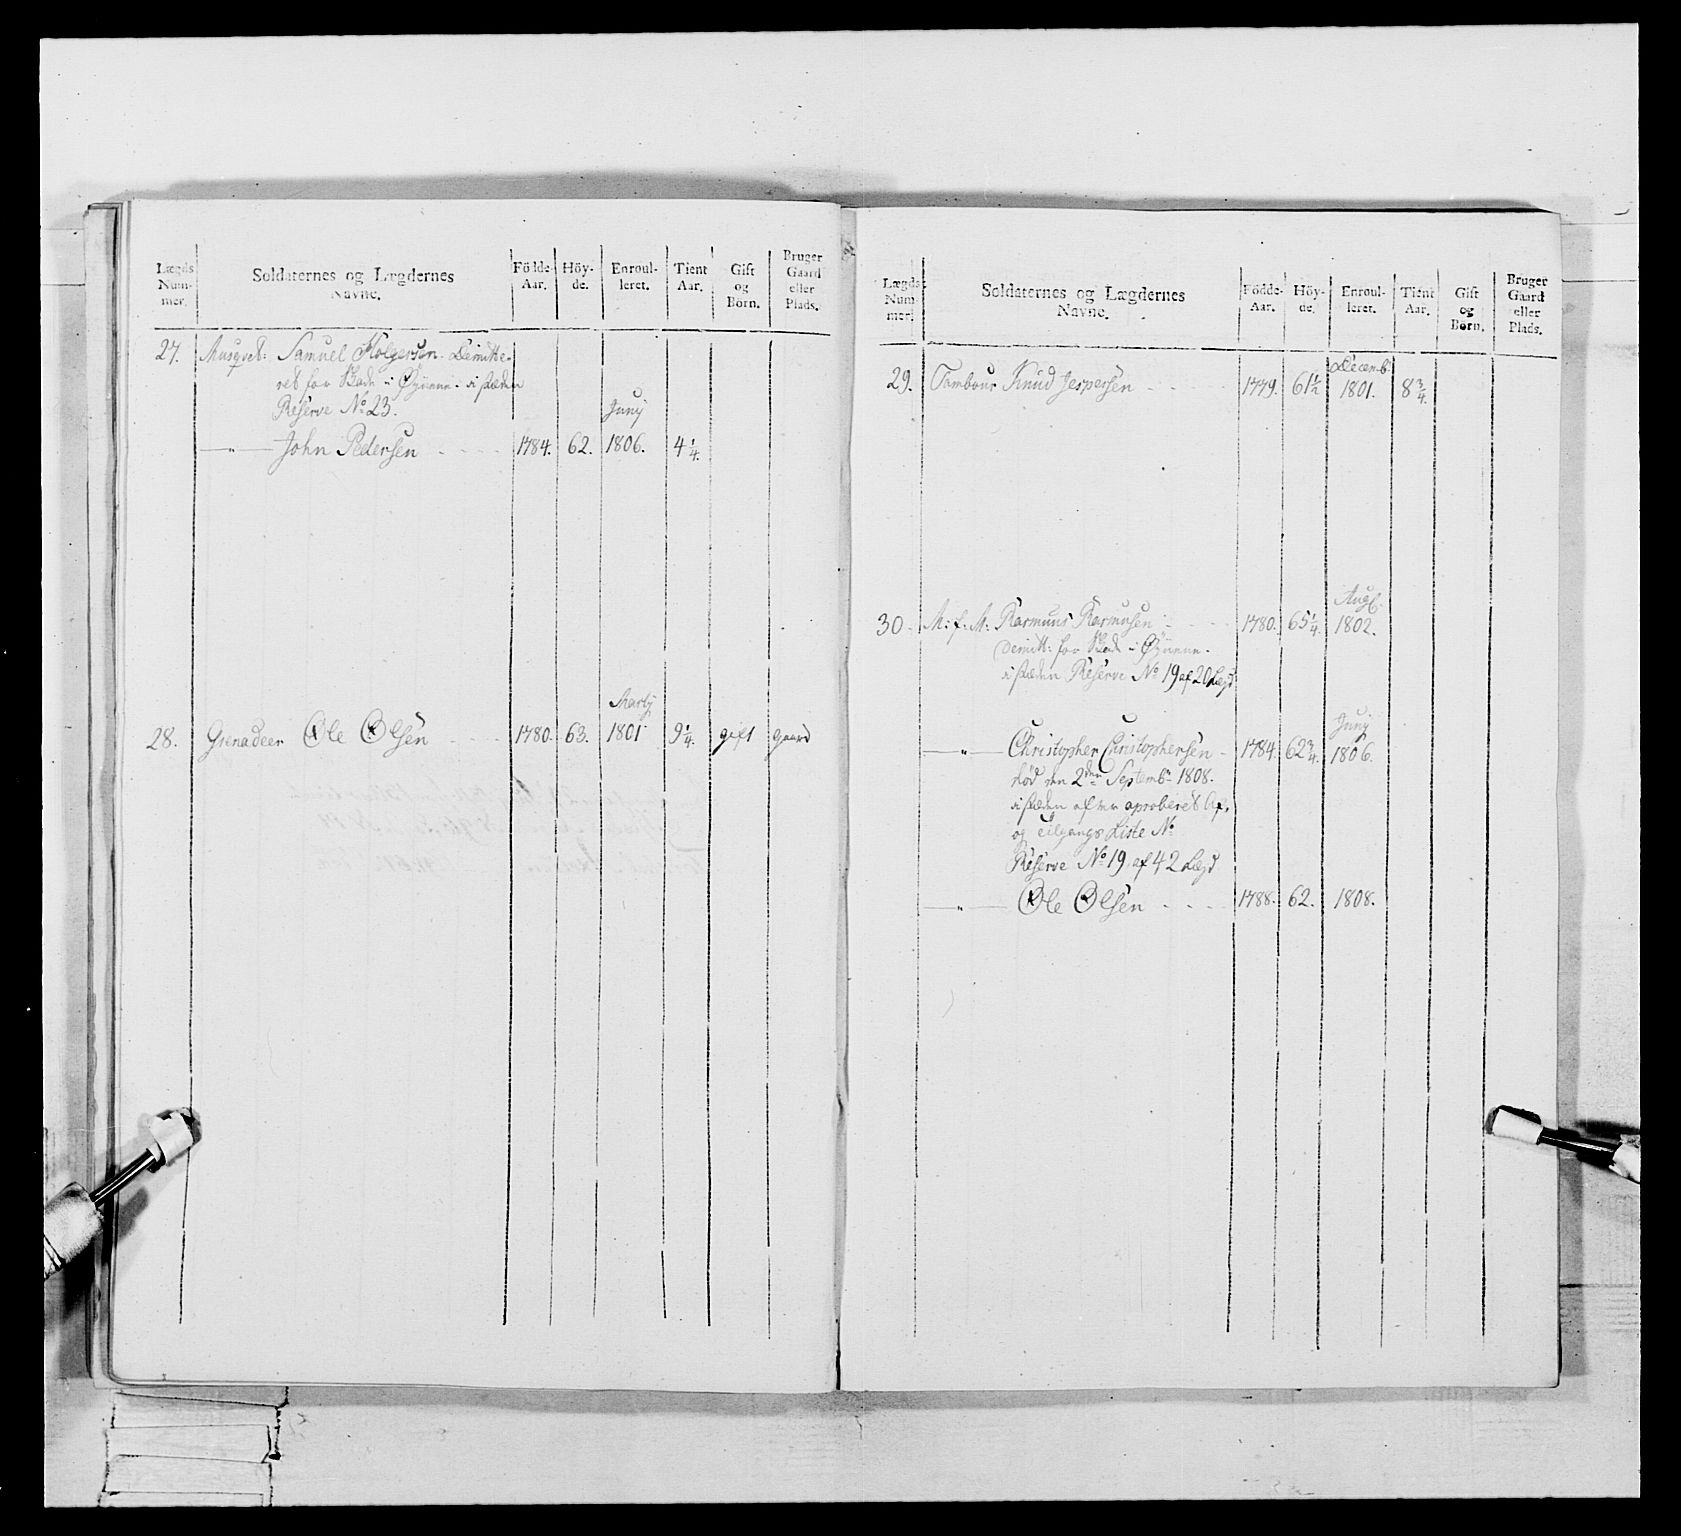 Lægds Num- mer. | Soldaternes og Lægdernes Navne. | Födde- Aar. | Höy- de. | Enroul- leret. | Tient Aar. | Gift og Börn. | Bruger Gaard eller Plads.
27. Musqvet: Samuel Holgersen. Demitte-
ret for Skade i Øynene. i stæden
Reserve No 23.
Junÿ
—"— John Pedersen - - - - 1784. 62. 1806. 4 1/4.
Martÿ
28. Grenadeer Ole Olsen - - - 1780. 63. 1801 9 1/4. gift gaard
Lægds Num- mer. | Soldaternes og Lægdernes Navne. | Födde- Aar. | Höy- de. | Enroul- leret. | Tient Aar. | Gift og Börn. | Bruger Gaard eller Plads.
Decemb
29. Tambour Knud Jespersen - - - - 1779. 61 1/2 1801. 8 3/4.
Aug
30. M: f: M: Rasmuus Rasmusen - - - 1780. 65 1/4. 1802.
Demitt: for Skade i Øynene.
i stæden Reserve No 19 af 20 Lægd
Junÿ
—"— Christopher Christophersen - 1784. 62 3/4. 1806.
död den 2den Septembr 1808.
i stæden efter aproberet Af,
og tilgangs Liste No
Reserve No 19 af 42 Lægd
—"— Ole Olsen - - - - 1788. 62. 1808.